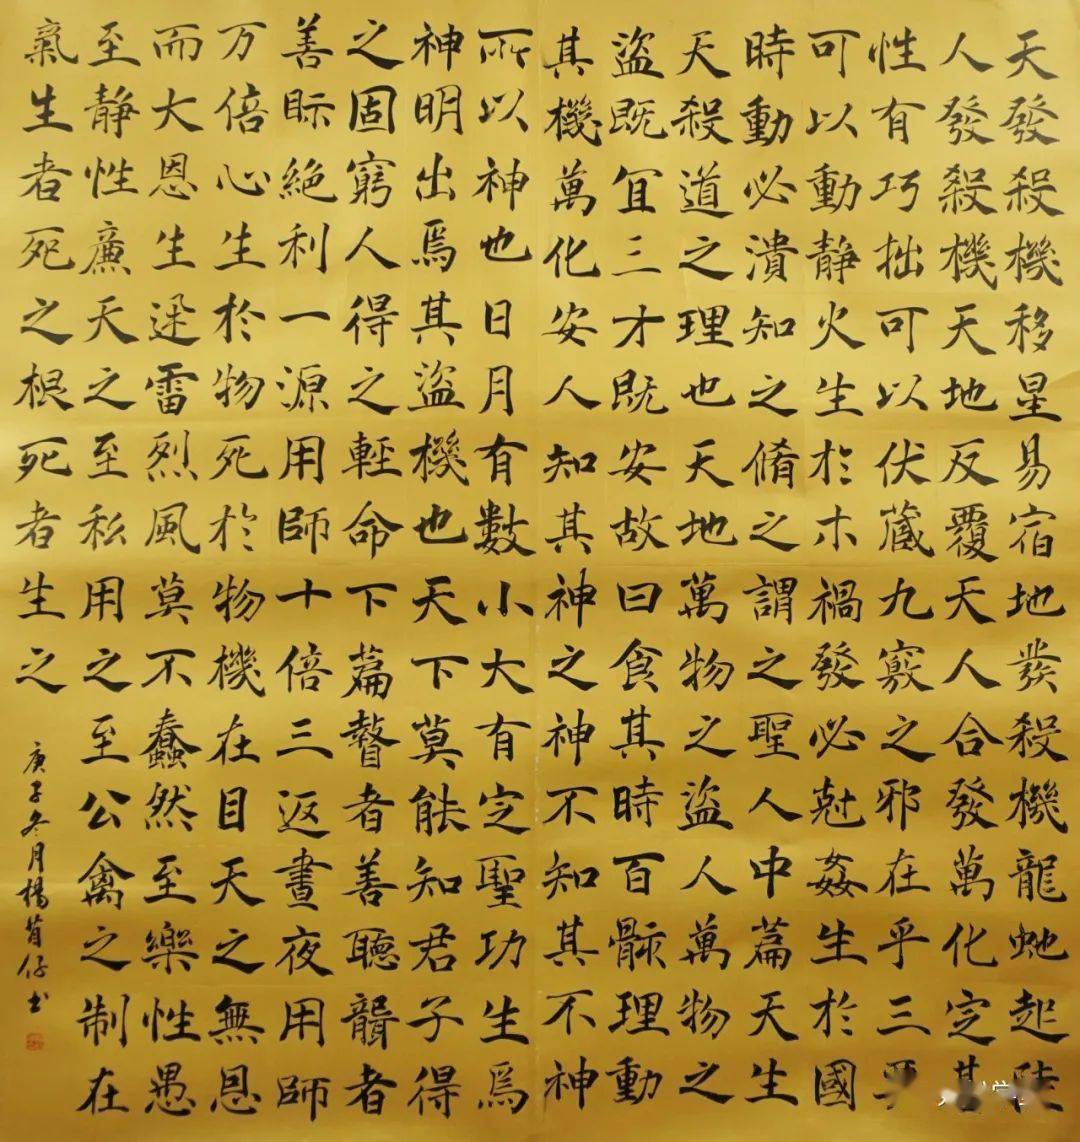 天發殺機移星易宿地發殺機龍虵起陸
人發殺機天地反覆天人合發萬化定其
性有巧拙可以伏藏九竅之邪在乎三要
可以動静火生於木禍發必尅姦生於國
時動必潰知之脩之謂之聖人中篇天生
天殺道之理也天地萬物之盜人萬物之
盜既宜三才既安故曰食其時百骸理動
其機萬化安人知其神之神不知其不神
所以神也日月有數小大有定聖功生焉
神明出焉其盜機也天下莫能知君子得
之固窮人得之輕命下篇瞽者善聽聾者
善眎絕利一源用師十倍三返晝夜用師
万倍心生於物死於物機在目天之無恩
而大恩生迅雷烈風莫不蠢然至樂性愚
至静性廉天之至私用之至公禽之制在
氣生者死之根死者生之
庚子冬月楊仔书